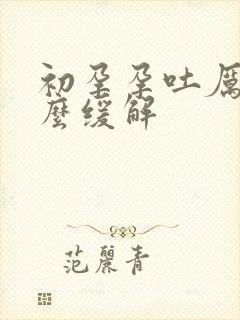 初孕孕吐厉
麼缓解
范麗青